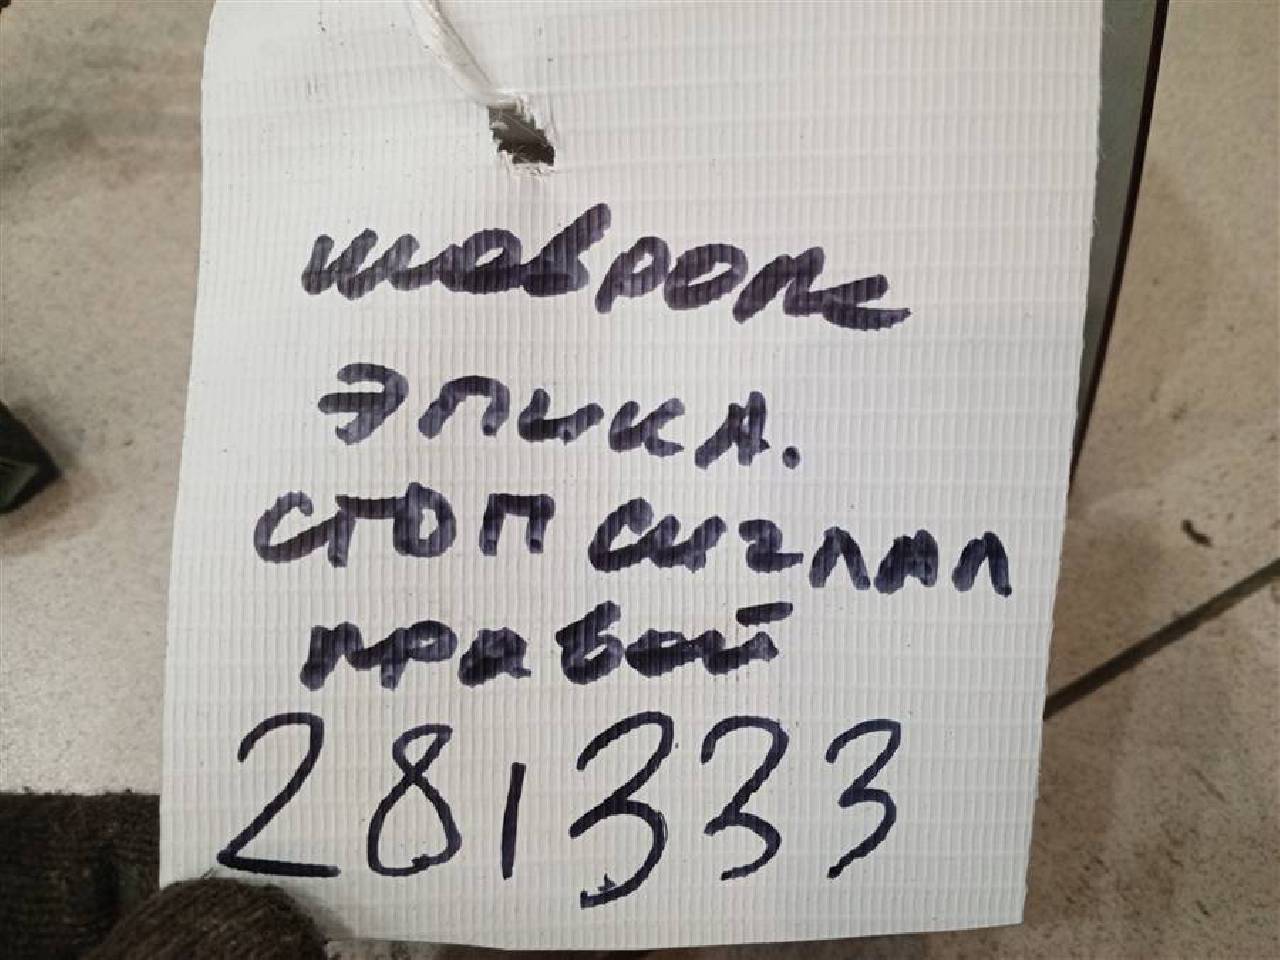 шовроле
эпика.
стоп сигнал
правой
281333